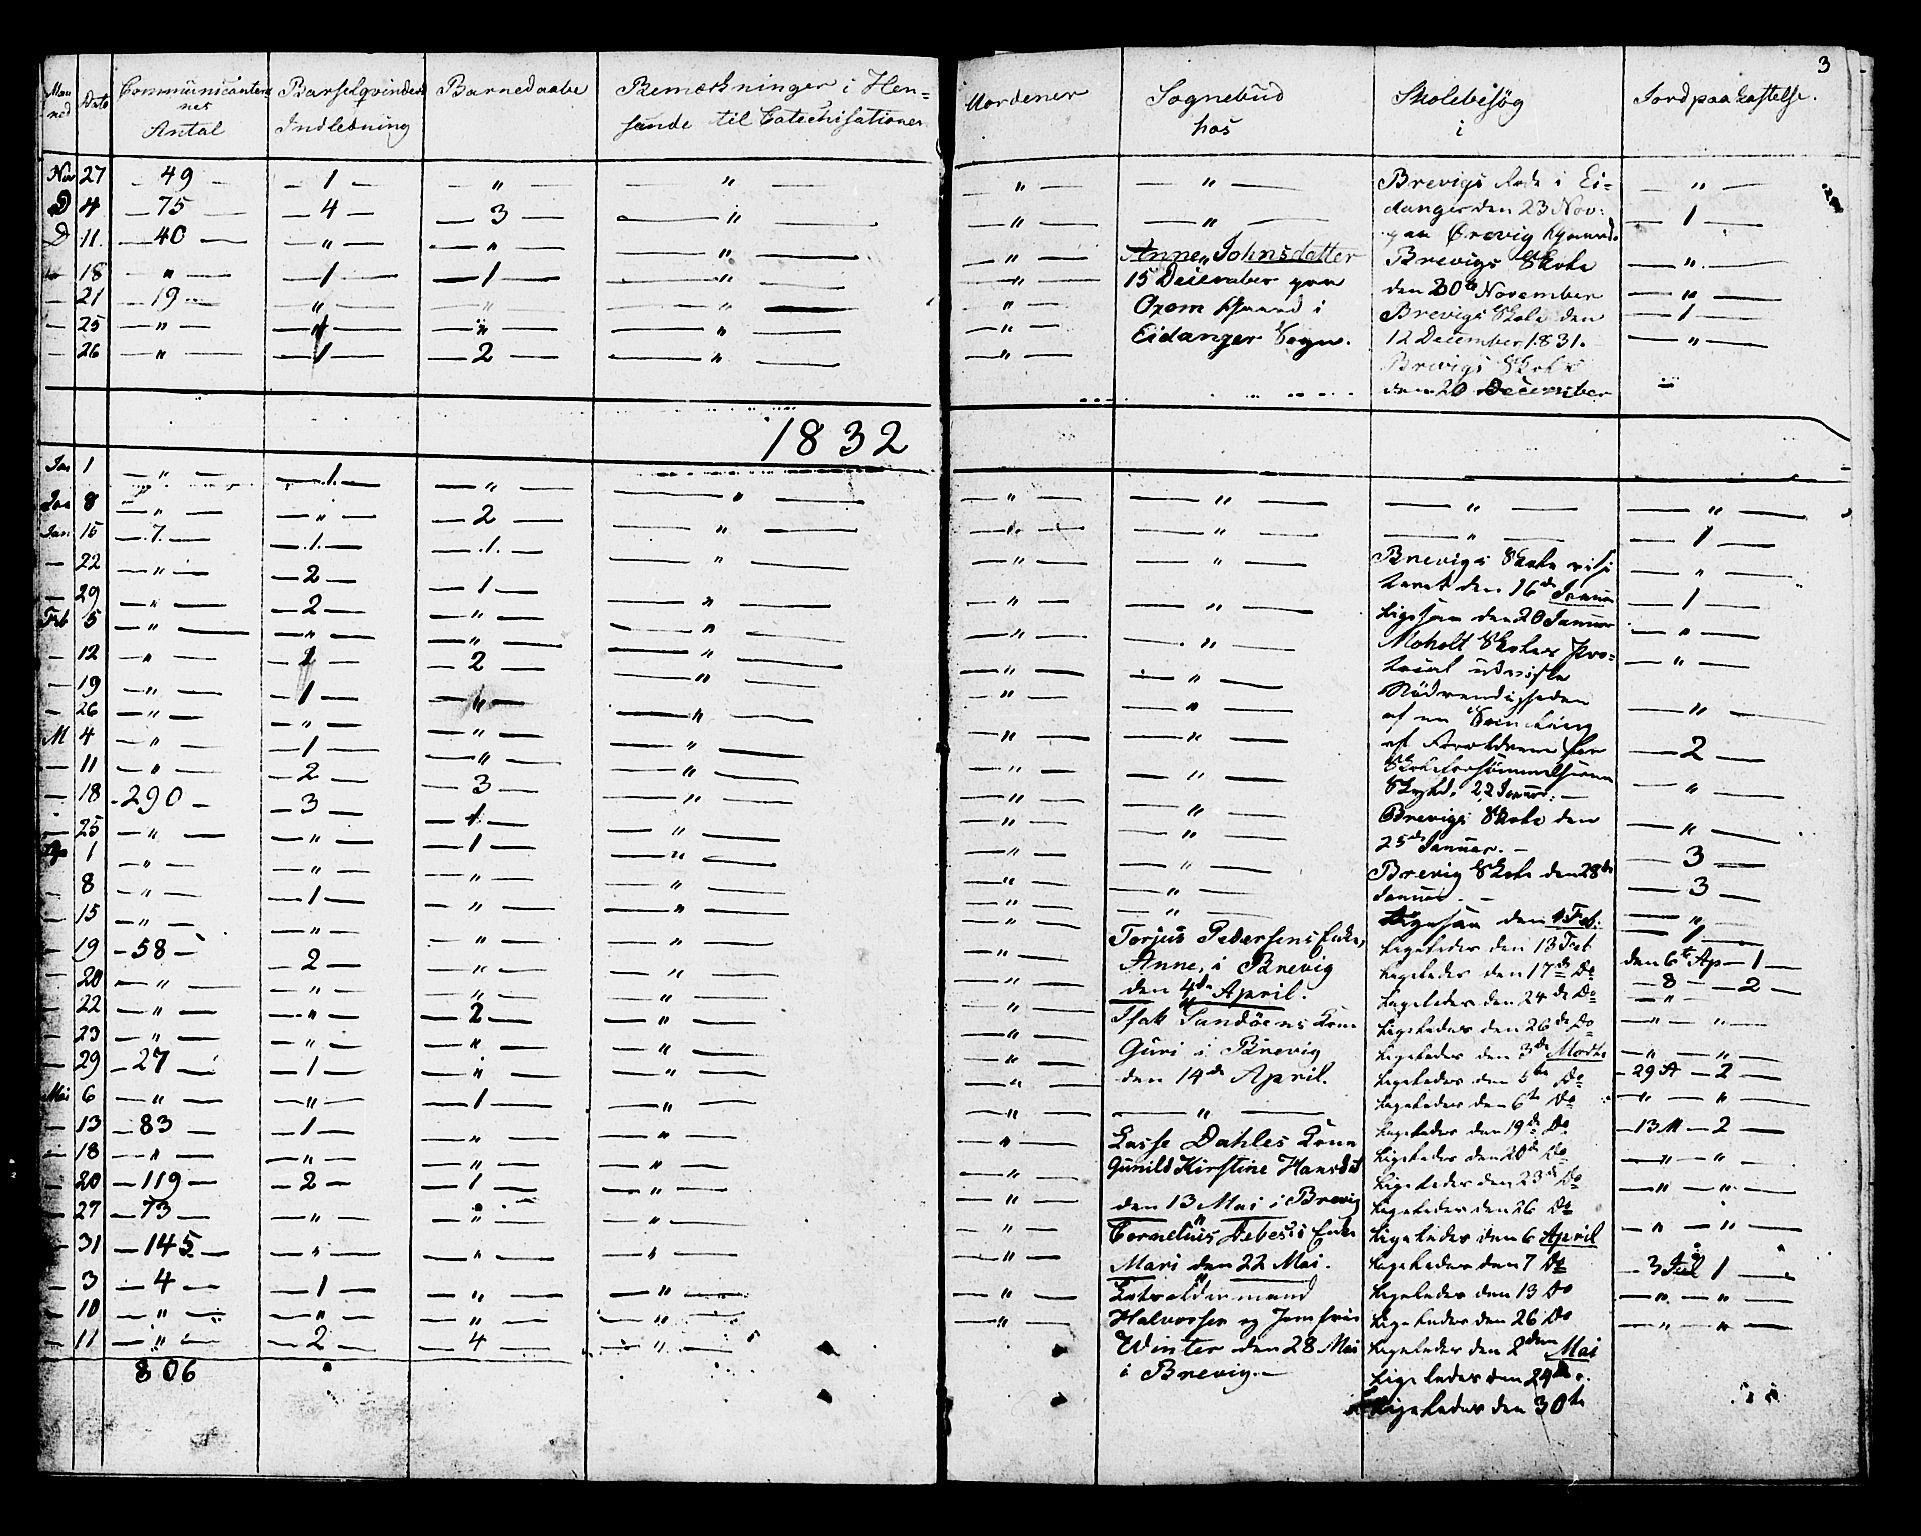 3
Maaned Dato Communicanternes Antal Barselqvinders Indledning Barnedaabe Bemærkninger i Hensende til Catechisationer
Sognebud hos Skolebesøg i Jordpaakastelse.
Nov 27 — 49 — — 1 — — " — — " —
D 4 — 75 — — 4 — — 3 — — " —
D 11. — 40 — — " — — " — — " —
— 18 — " — — 1 — — 1 — — " —
— 21 — 19 — — " — — " — — " —
— 25 — " — — " — — " — — " —
— 26 — " — — 1 — — 2 — — " —
1832
Jan 1 — " — — 1 — — " — — " —
Jan 8 — " — — " — — 2 — — " —
Jan 15 — 7. — — 1. — — 1. — — " —
— 22 — " — — 2 — — 1 — — " —
— 29 — " — — 2 — — " — — " —
Feb 5 — " — — " — — " — — " —
— 12 — " — — 1 — — 2 — — " —
— 19 — " — — 1 — — " — — " —
— 26 — " — — " — — " — — " —
M 4 — " — — 1 — — " — — " —
— 11 — " — — 2 — — 3 — — " —
— 18 — 290 — — 3 — — 1 — — " —
— 25 — " — — " — — 1 — — " —
1 — " —
— 8 — " — — 1 — — " — — " —
— 15 — " — — " — — " — — " —
— 19 — 58 — — 2 — — " — — " —
— 20 — " — — " — — " — — " —
— 22 — " — — " — — 2 — — " —
— 23 — " — — " — — " — — " —
— 29 — 27 — — 1 — — " — — " —
Mai 6 — " — — " — — 1 — — " —
— 13 — 83 — — 1 — — " — — " —
— 18 — " — — " — — " — — " —
— 20 — 119 — — 2 — — 1 — — " —
— 27 — 73 — — " — — " — — " —
— 31 — 145 — — " — — " — — " —
— 3 — 4 — — 1 — — " — — " —
— 10 — " — — " — — " — — " —
— 11 — " — — 2 — — 4 — — " —
806
Anne Johnsdatter
15 December paa
Gaard i
Eidanger Sogn.
Torjus Pedersens Enke,
Anne, i Brevig
den 4de April.
Isak Sundöens Kone
Guri i Brevig
den 14de April.
— " —
Lasse Dahles Kone
Gunild Kirstine Hansdat
den 13 Mai i Brevig
Cornelius Enke
Mari den 22 Mai.
Halvorsen og Jomfrue
Winter den 28 Mai
i Brevig. —
Brevigs i Ei-
danger den 23 Nov.
paa Ørevig
Brevigs Skole
den 30te November
Brevigs Skole den
12 December 1831.
Brevigs Skole
den 20 December
— " —
— " —
Brevigs Skole visi
teret den 16de Januar
Ligesaa den 20 Januar
Moholt Skoles Pro-
tocol udviste
Nödvendigheden
af en
af Forældrene for
Skoleforsömmelserne
22 Januar. —
Brevigs Skole den
25de Januar. —
Brevig Skole den 28de
Januar. —
Ligesaa den 1 Feb.
Ligeledes den 13 Feb
Ligeledes den 17de Do
Ligeledes den 24de Do
Ligeledes den 26de Do
Ligeledes den 3de Marts
Ligeledes den 5te Do
Ligeledes den 6te Do
Ligeledes den 19de Do
Ligeledes den 20de Do
Ligeledes den 23de Do
Ligeledes den 26 Do
Ligeledes den 6 April
Ligeledes den 7 Do
Ligeledes den 13 Do
Ligeledes den 26 Do
Ligeledes den 2den Mai
Ligeledes den 29de
Ligeledes den 30te
— " —
— 1 —
— " —
— " —
— 1 —
— " —
— " —
— 1 —
— " —
— 1 —
— " —
— " —
— " —
— 2 —
— " —
— " —
— 3 —
— 3 —
— " —
— 1 —
den 6te Ap — 1 —
— 8 — — 2 —
— " —
— " — " —
— " — " —
— 29 A — 2 —
— " — " —
— 13 M — 2 —
— " — " —
— " — " —
— " — " —
— 3 1 —
— " — " —
— " — " —